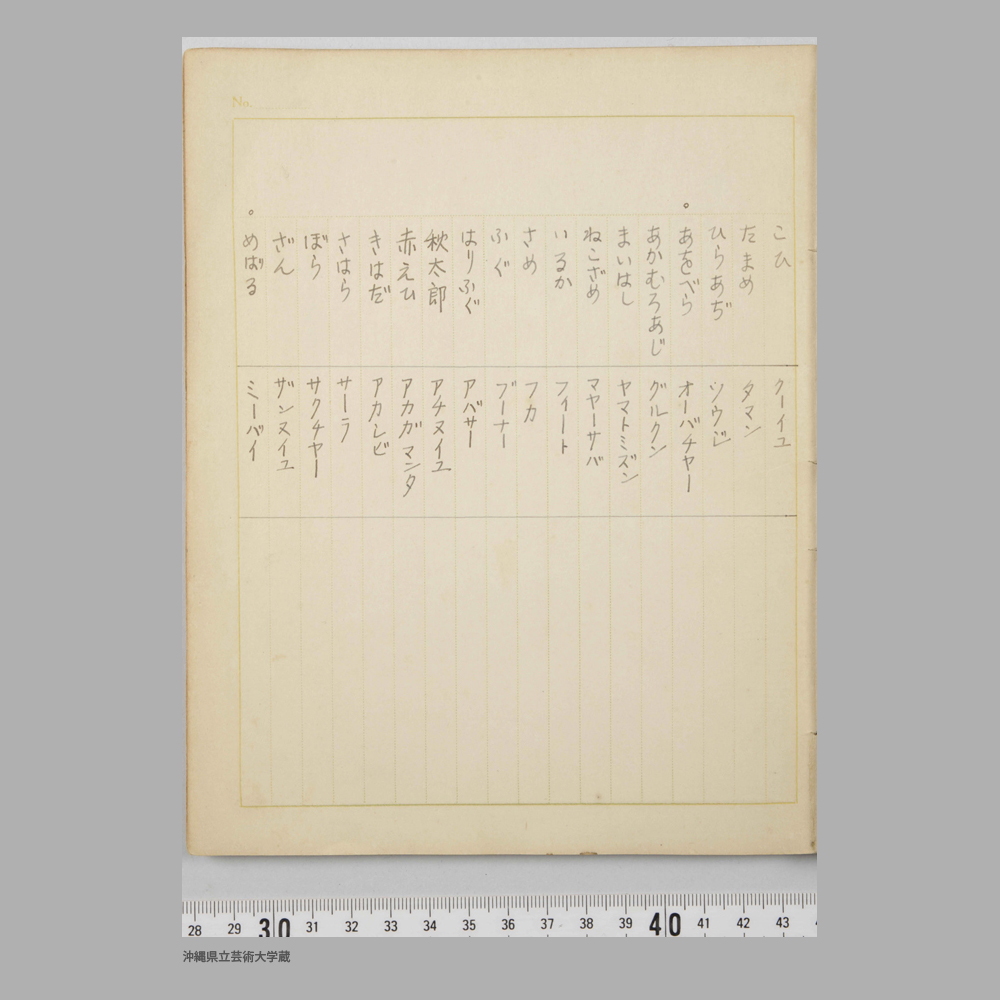 No.
こひ クーイユ
たまめ タマン
ひらあぢ
。あをべら オーバチヤー
あかむろあじ グルクン
まいはし ヤマトミズン
ねこざめ マヤーサバ
いるか フイート
さめ フカ
ふぐ ブーナー
はりふぐ アバサー
秋太郎 アチヌイユ
赤えひ アカガマンタ
きはだ アカシビ
さはら サーラ
ぼら サクチヤー
ざん ザンヌイユ
。めばる ミーバイ
28 29 30 31 32 33 34 35 36 37 38 39 40 41 42 43
沖縄県立芸術大学蔵